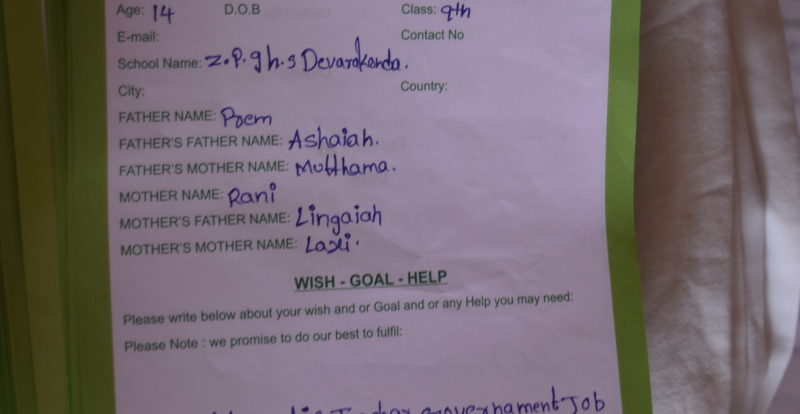 Age: 14 D.O.B Class: 9th
E-mail: Contact No
School Name: Z.P.g h.s Devarakonda.
City: Country:
FATHER NAME: Prem
FATHER'S FATHER NAME: Ashaiah.
FATHER'S MOTHER NAME: Mutthama.
MOTHER NAME: Rani
MOTHER'S FATHER NAME: Lingaiah
MOTHER'S MOTHER NAME: Laxi.
WISH - GOAL - HELP
Please write below about your wish and or Goal and or any Help you may need:
Please Note : we promise to do our best to fulfil:
Job